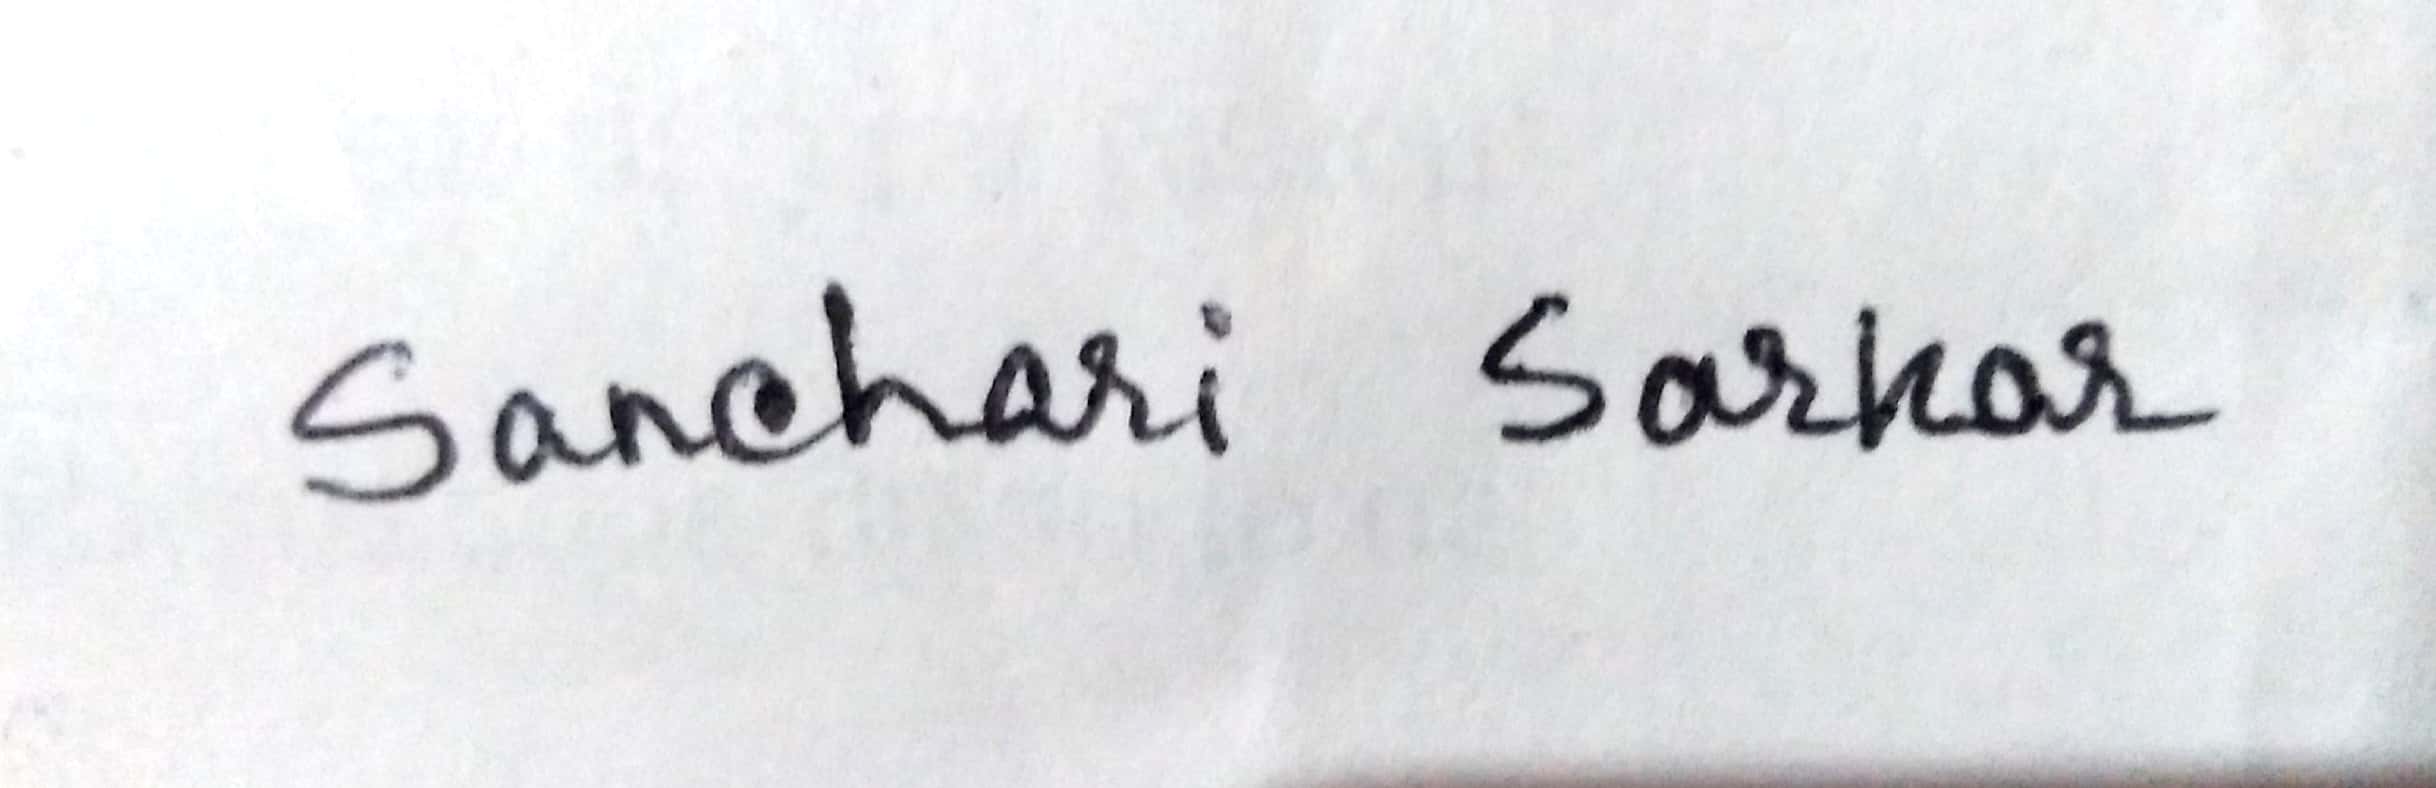 Sanchari Sarkar